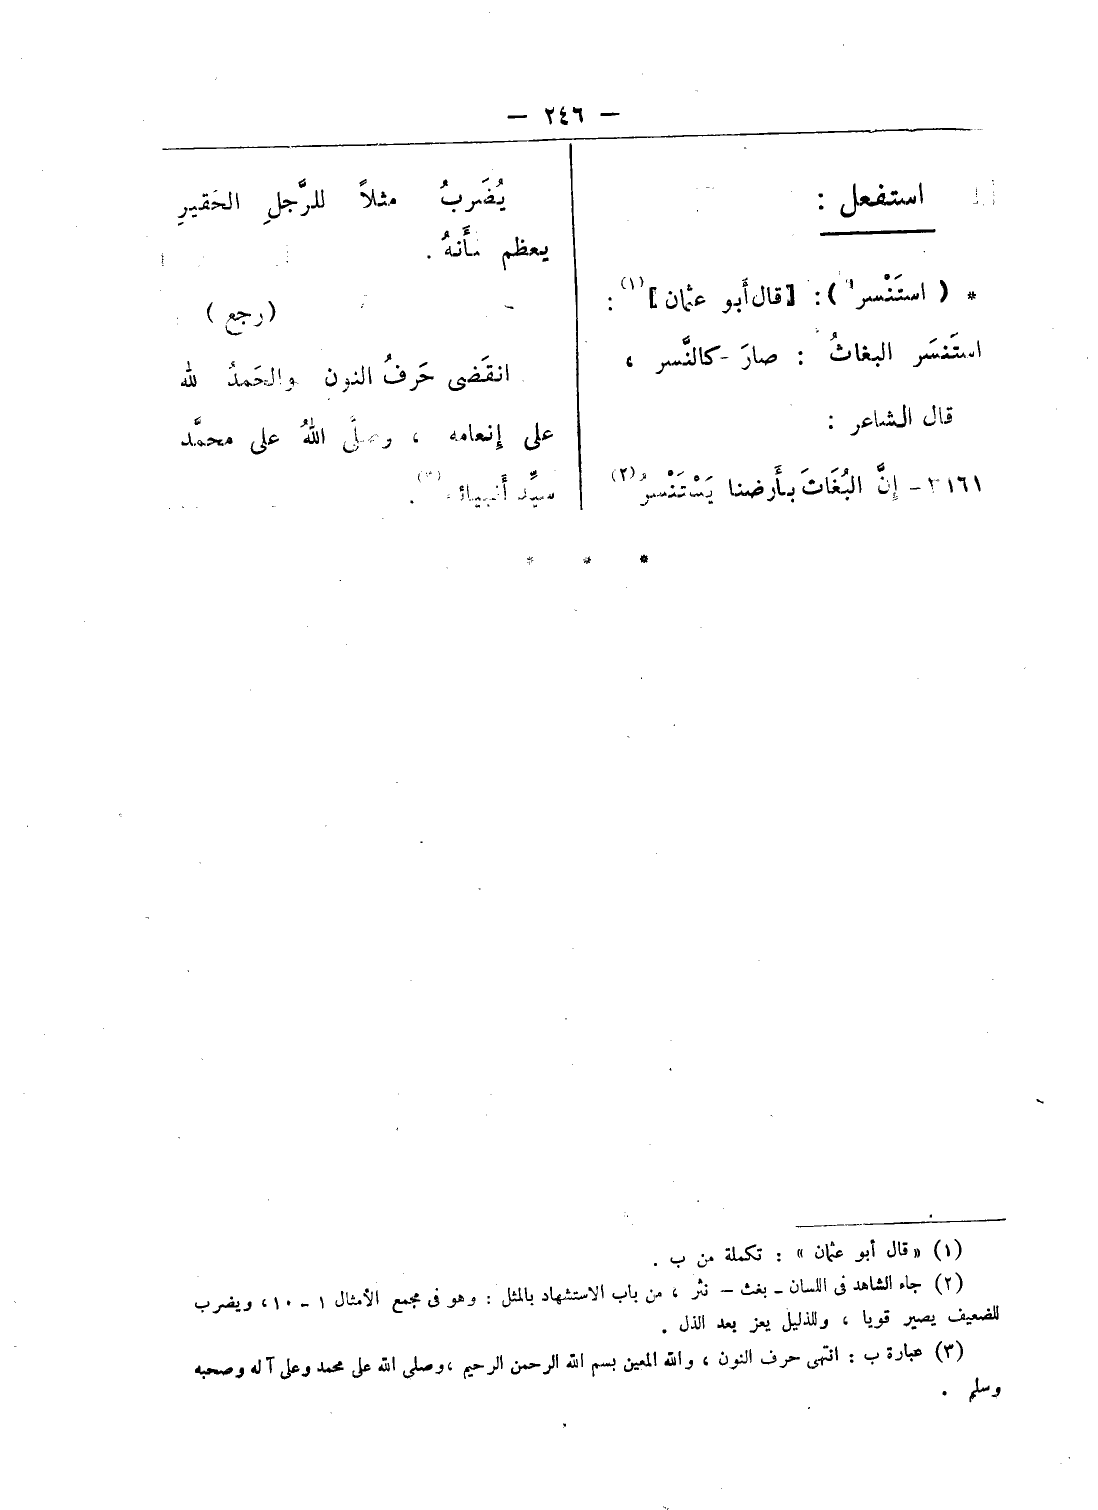 — ٢٤٦ —
استفعل :
* ( استَنْسر ) : [قال أَبو عثمان](١) :
استَنسَر البغاثُ : صارَ كالنَّسر ،
قال الشاعر :
٣١٦١ - إِنَّ البُغَاثَ بأَرضنا يَسْتَنْسرُ(٢)
يُضَربُ مثلاً للرَّجلِ الحَقيرِ
يعظم شأَنهُ .
(رجع)
انقَضى حَرفُ النون والحَمدُ لله
على إِنعامه ، وصلَّى اللهُ على محمَّد
سيِّد أَنبيائه(٣) .
* * *
(١) « قال أبو عثمان » : تكملة من ب .
(٢) جاء الشاهد فى اللسان - بغث - نثر ، من باب الاستشهاد بالمثل : وهو فى مجمع الأمثال ١ - ١٠ ، ويضرب
للضعيف يصير قويا ، وللذليل يعز بعد الذل .
(٣) عبارة ب : انتهى حرف النون ، والله المعين بسم الله الرحمن الرحيم ، وصلى الله على محمد وعلى آله وصحبه
وسلم .